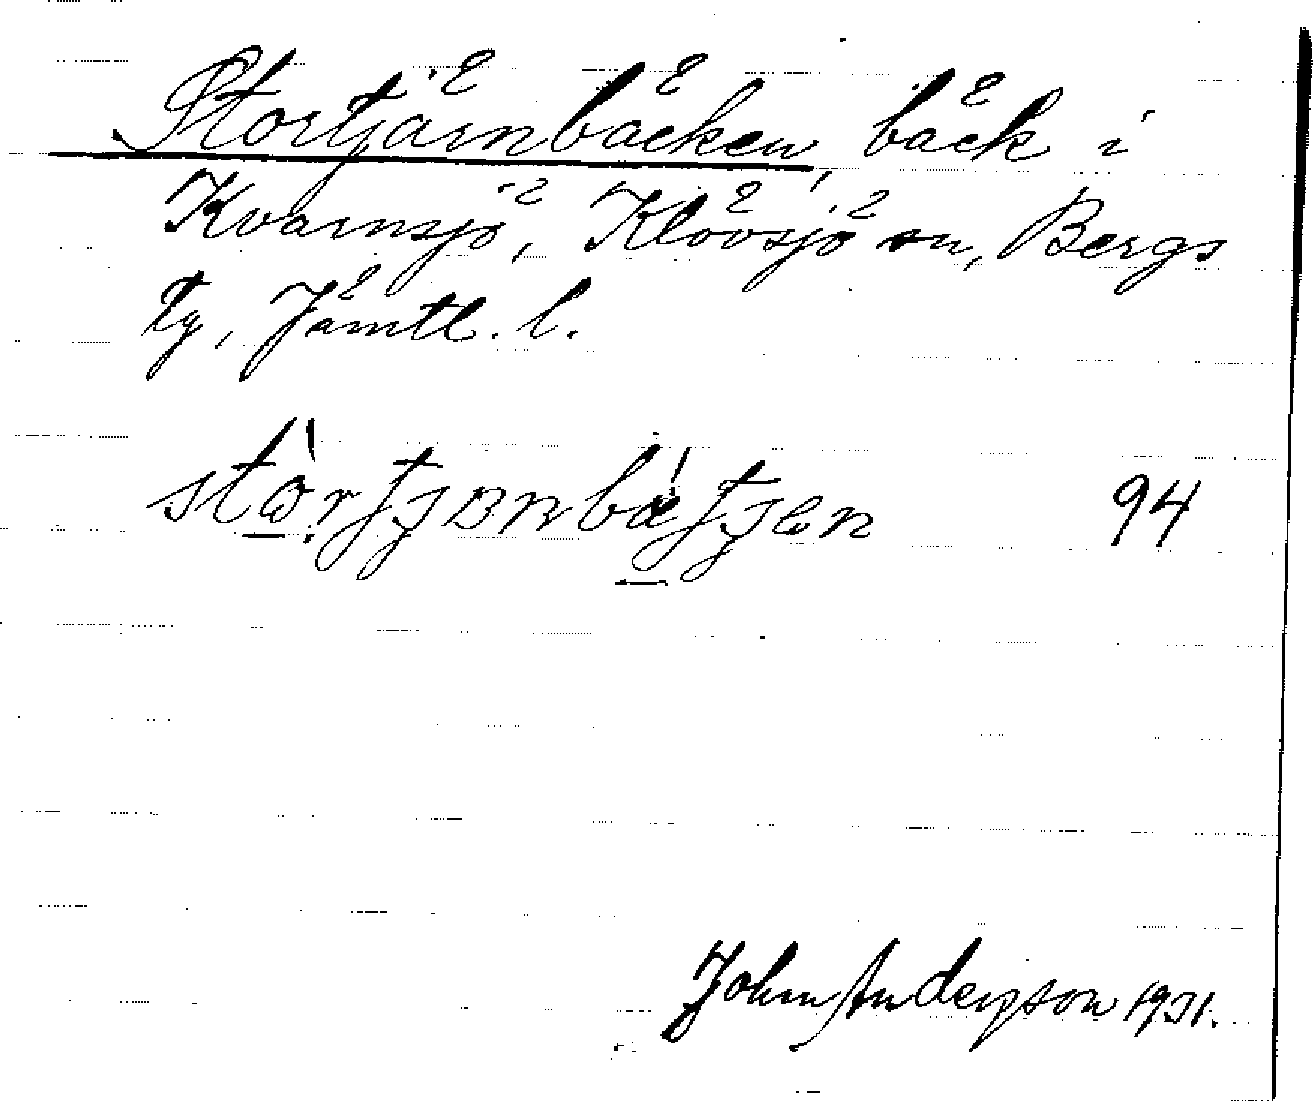 Stortjärnbäcken, bäck i
Kvarnsjö, Klövsjö sn, Bergs
tg, Jämtl. l.
94
John Anderson 1931.